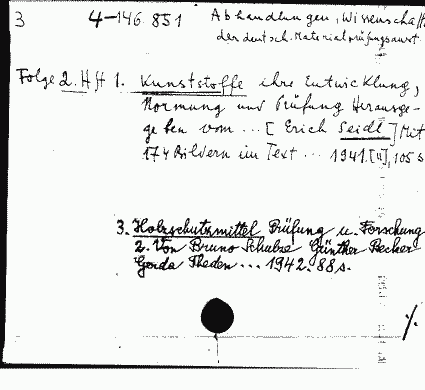 3 4-146.851 Abhandlungen, Wissenschaft
der deutsch. Materialprüfungsanst.
Folge 2. Hft 1. Kunststoffe ihre Entwicklung,
Normung und Prüfung Herausge-
geben vom ... [Erich Seidl] Mit
174 Bildern im Text ... 1941. [4], 105 s
3. Holzschutzmittel Prüfung u. Forschung
2. Von Bruno Schulze Günther Becker
Gerda Theden ... 1942. 88 s.
./.